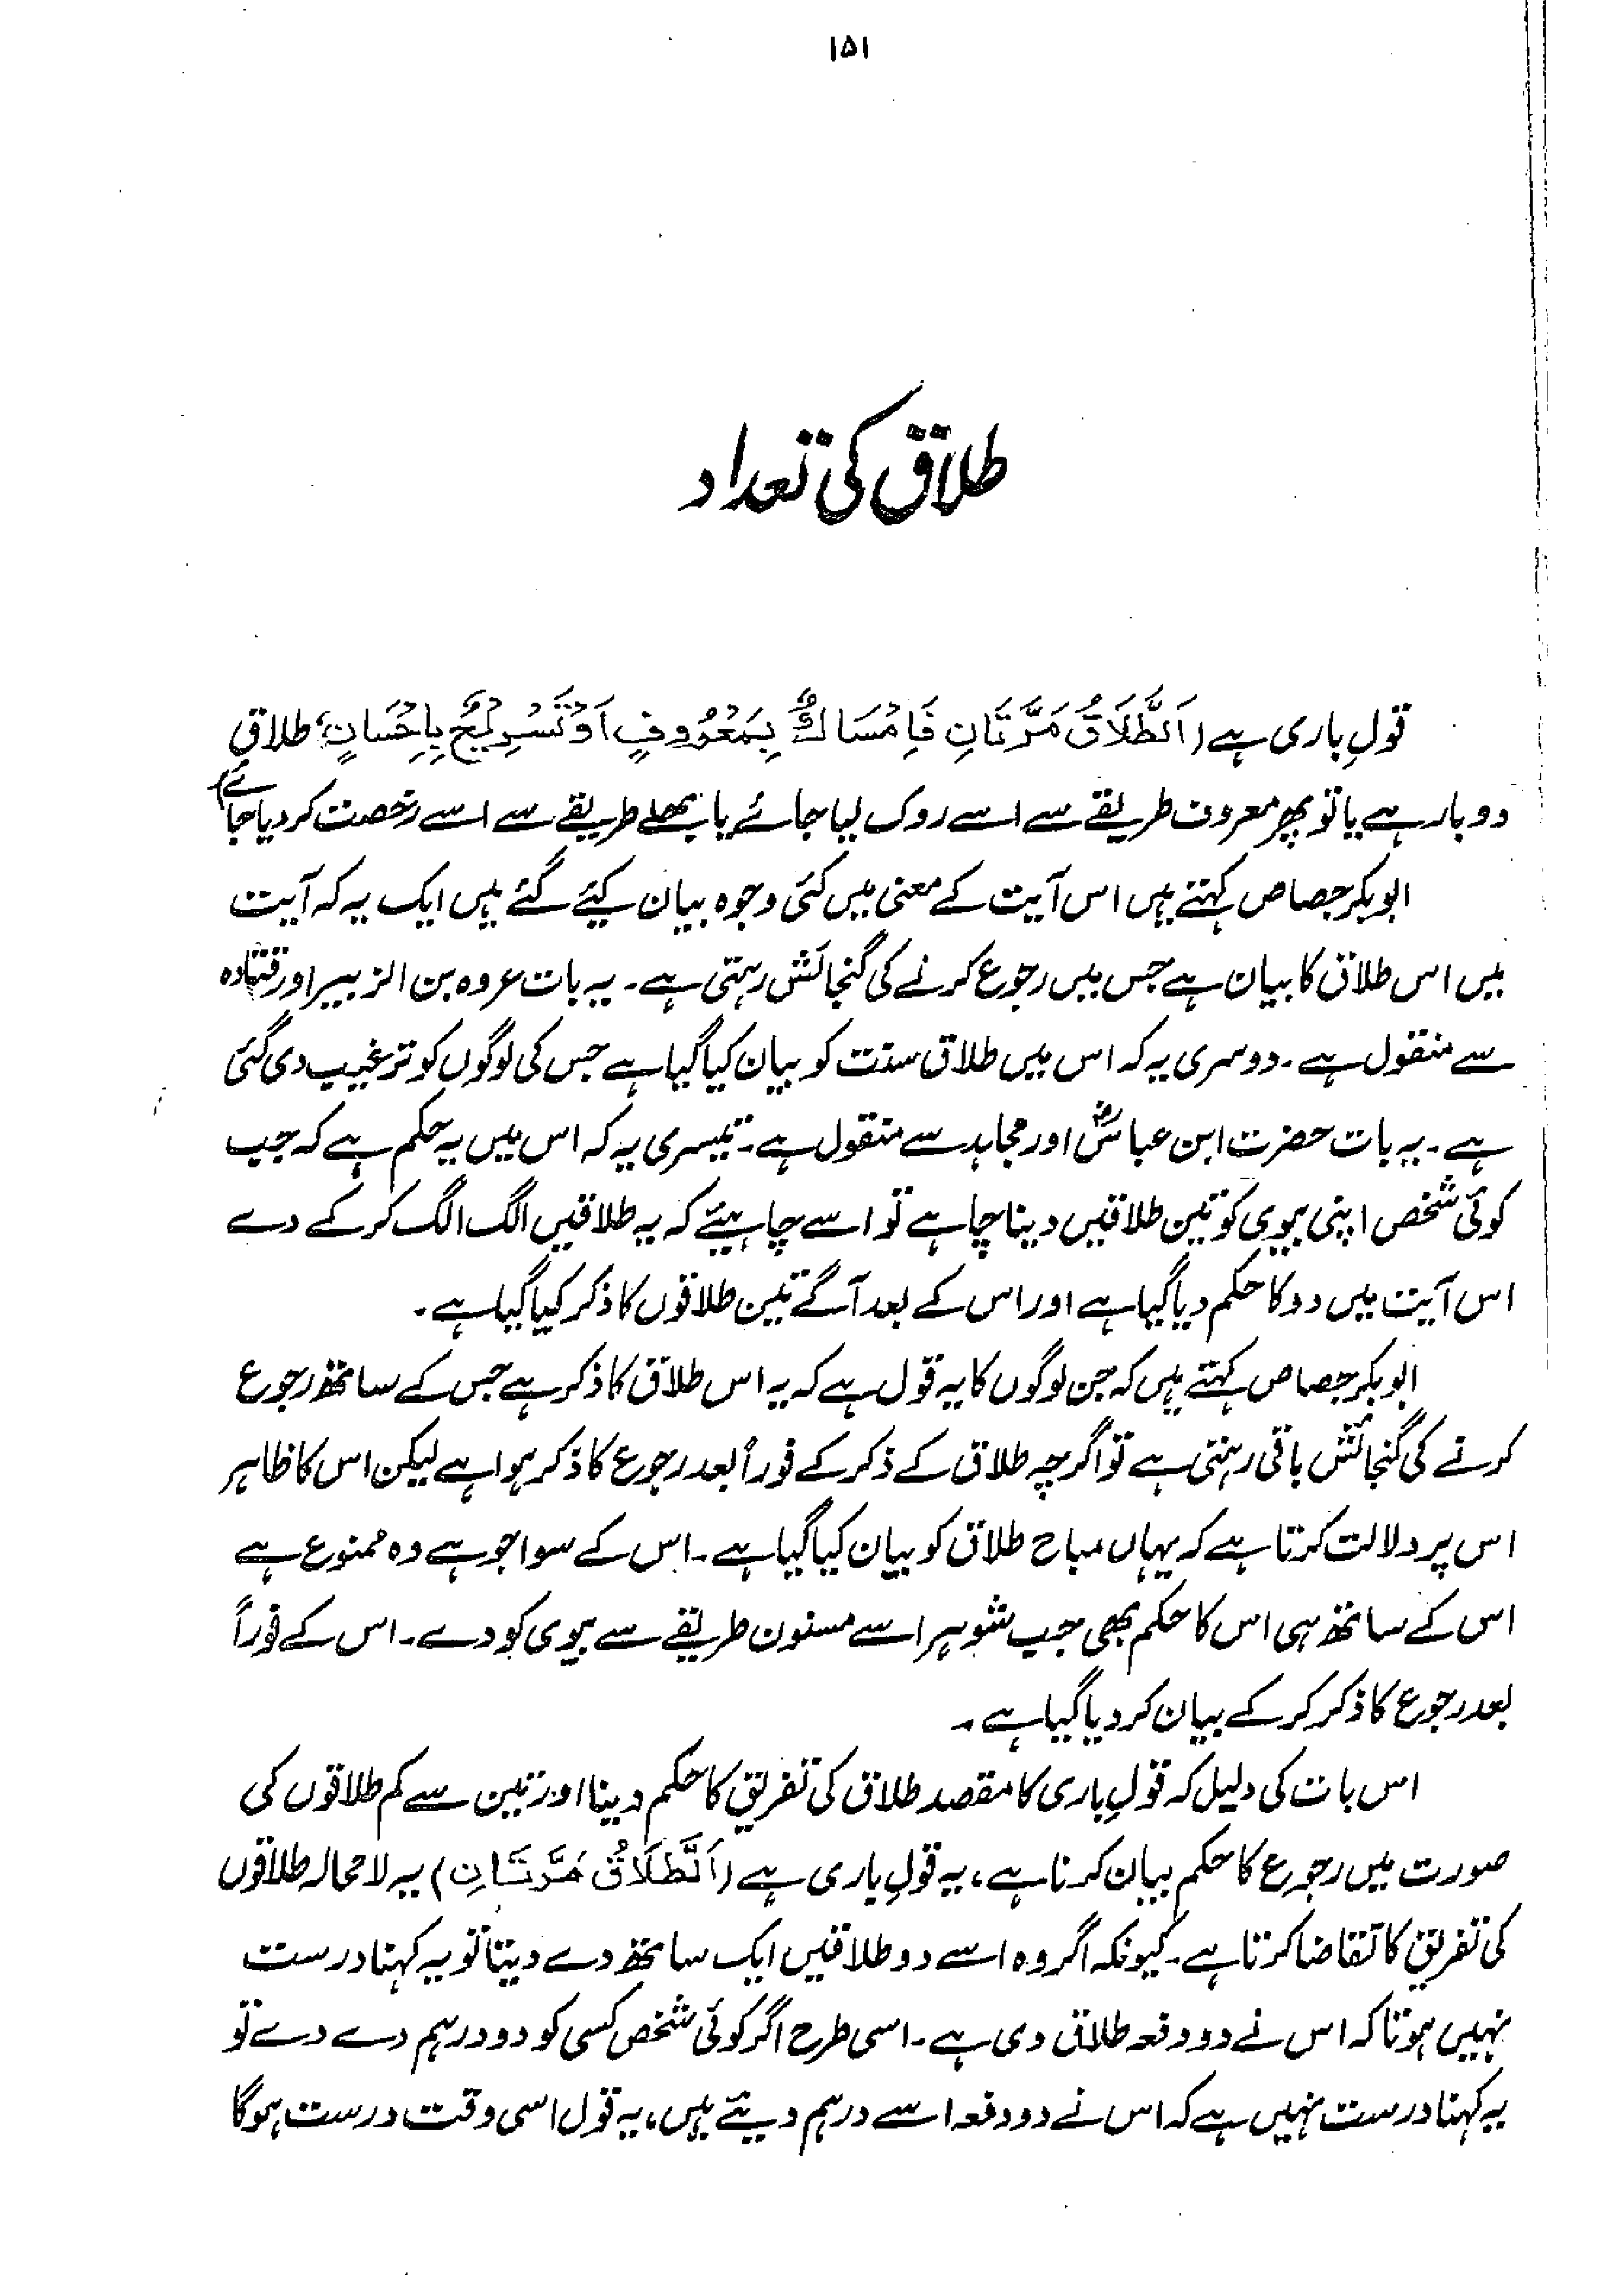 ۱۵۱
طلاق کی تعداد
قولِ باری ہے (اَلطَّلَاقُ مَرَّتَانِ فَاِمْسَاكٌ بِمَعْرُوفٍ اَوْ تَسْرِيْحٌ بِاِحْسَانٍ، طلاق
دو بار ہے یا تو پھر معروف طریقے سے اسے روک لیا جائے یا بھلے طریقے سے اسے رخصت کر دیا جائے)
ابوبکر جصاص کہتے ہیں اس آیت کے معنی میں کئی وجوہ بیان کیئے گئے ہیں ایک یہ کہ آیت
میں اس طلاق کا بیان ہے جس میں رجوع کرنے کی گنجائش رہتی ہے۔ یہ بات عروہ بن الزبیر اور قتادہ
سے منقول ہے۔ دوسری یہ کہ اس میں طلاق سنت کو بیان کیا گیا ہے جس کی لوگوں کو ترغیب دی گئی
ہے۔ یہ بات حضرت ابن عباسؓ اور مجاہد سے منقول ہے۔ تیسری یہ کہ اس میں یہ حکم ہے کہ جب
کوئی شخص اپنی بیوی کو تین طلاقیں دینا چاہے تو اسے چاہیئے کہ یہ طلاقیں الگ الگ کر کے دے
اس آیت میں دو کا حکم دیا گیا ہے اور اس کے بعد آگے تین طلاقوں کا ذکر کیا گیا ہے۔
ابوبکر جصاص کہتے ہیں کہ جن لوگوں کا یہ قول ہے کہ یہ اس طلاق کا ذکر ہے جس کے ساتھ رجوع
کرنے کی گنجائش باقی رہتی ہے تو اگرچہ طلاق کے ذکر کے فوراً بعد رجوع کا ذکر ہوا ہے لیکن اس کا ظاہر
اس پر دلالت کرتا ہے کہ یہاں مباح طلاق کو بیان کیا گیا ہے۔ اس کے سوا جو ہے وہ ممنوع ہے
اس کے ساتھ ہی اس کا حکم بھی جب شوہر اسے مسنون طریقے سے بیوی کو دے۔ اس کے فوراً
بعد رجوع کا ذکر کر کے بیان کر دیا گیا ہے۔
اس بات کی دلیل کہ قولِ باری کا مقصد طلاق کی تفریق کا حکم دینا اور تین سے کم طلاقوں کی
صورت میں رجوع کا حکم بیان کرنا ہے، یہ قولِ باری ہے (اَلطَّلَاقُ مَرَّتَانِ) یہ لامحالہ طلاقوں
کی تفریق کا تقاضا کرتا ہے۔ کیونکہ اگر وہ اسے دو طلاقیں ایک ساتھ دے دیتا تو یہ کہنا درست
نہیں ہوتا کہ اس نے دو دفعہ طلاق دی ہے۔ اسی طرح اگر کوئی شخص کسی کو دو درہم دے دے تو
یہ کہنا درست نہیں ہے کہ اس نے دو دفعہ اسے درہم دیئے ہیں، یہ قول اسی وقت درست ہوگا